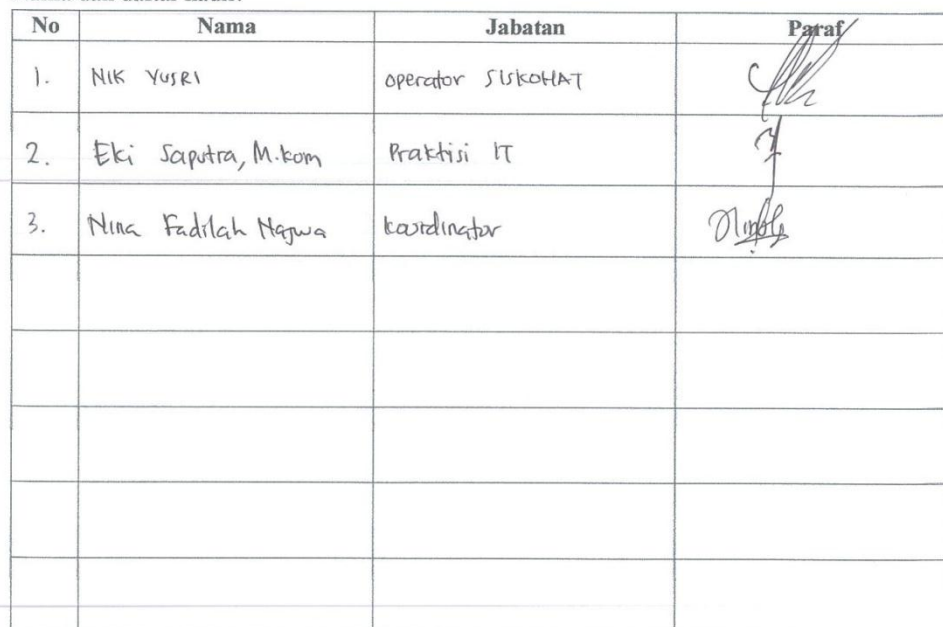 No Nama Jabatan Paraf
1. NIK YUSRI operator SISKOHAT
2. Eki Saputra, M.kom Praktisi IT
3. Nina Fadilah Najwa koordinator